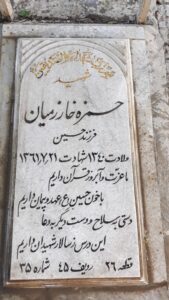 شهید
حمزه خازرمیان
فرزند حسین
ولادت ۱۳۴۰ شهادت ۱۳۶۱/۷/۲۱
ما عزت و آبرو ز قرآن داریم
با خون حسین (ع) عهد و پیمان داریم
دستی به سلاح و دست دیگر به دعا
این درس ز سالار شهیدان داریم
قطعه ۲۶ ردیف ۴۵ شماره ۳۵